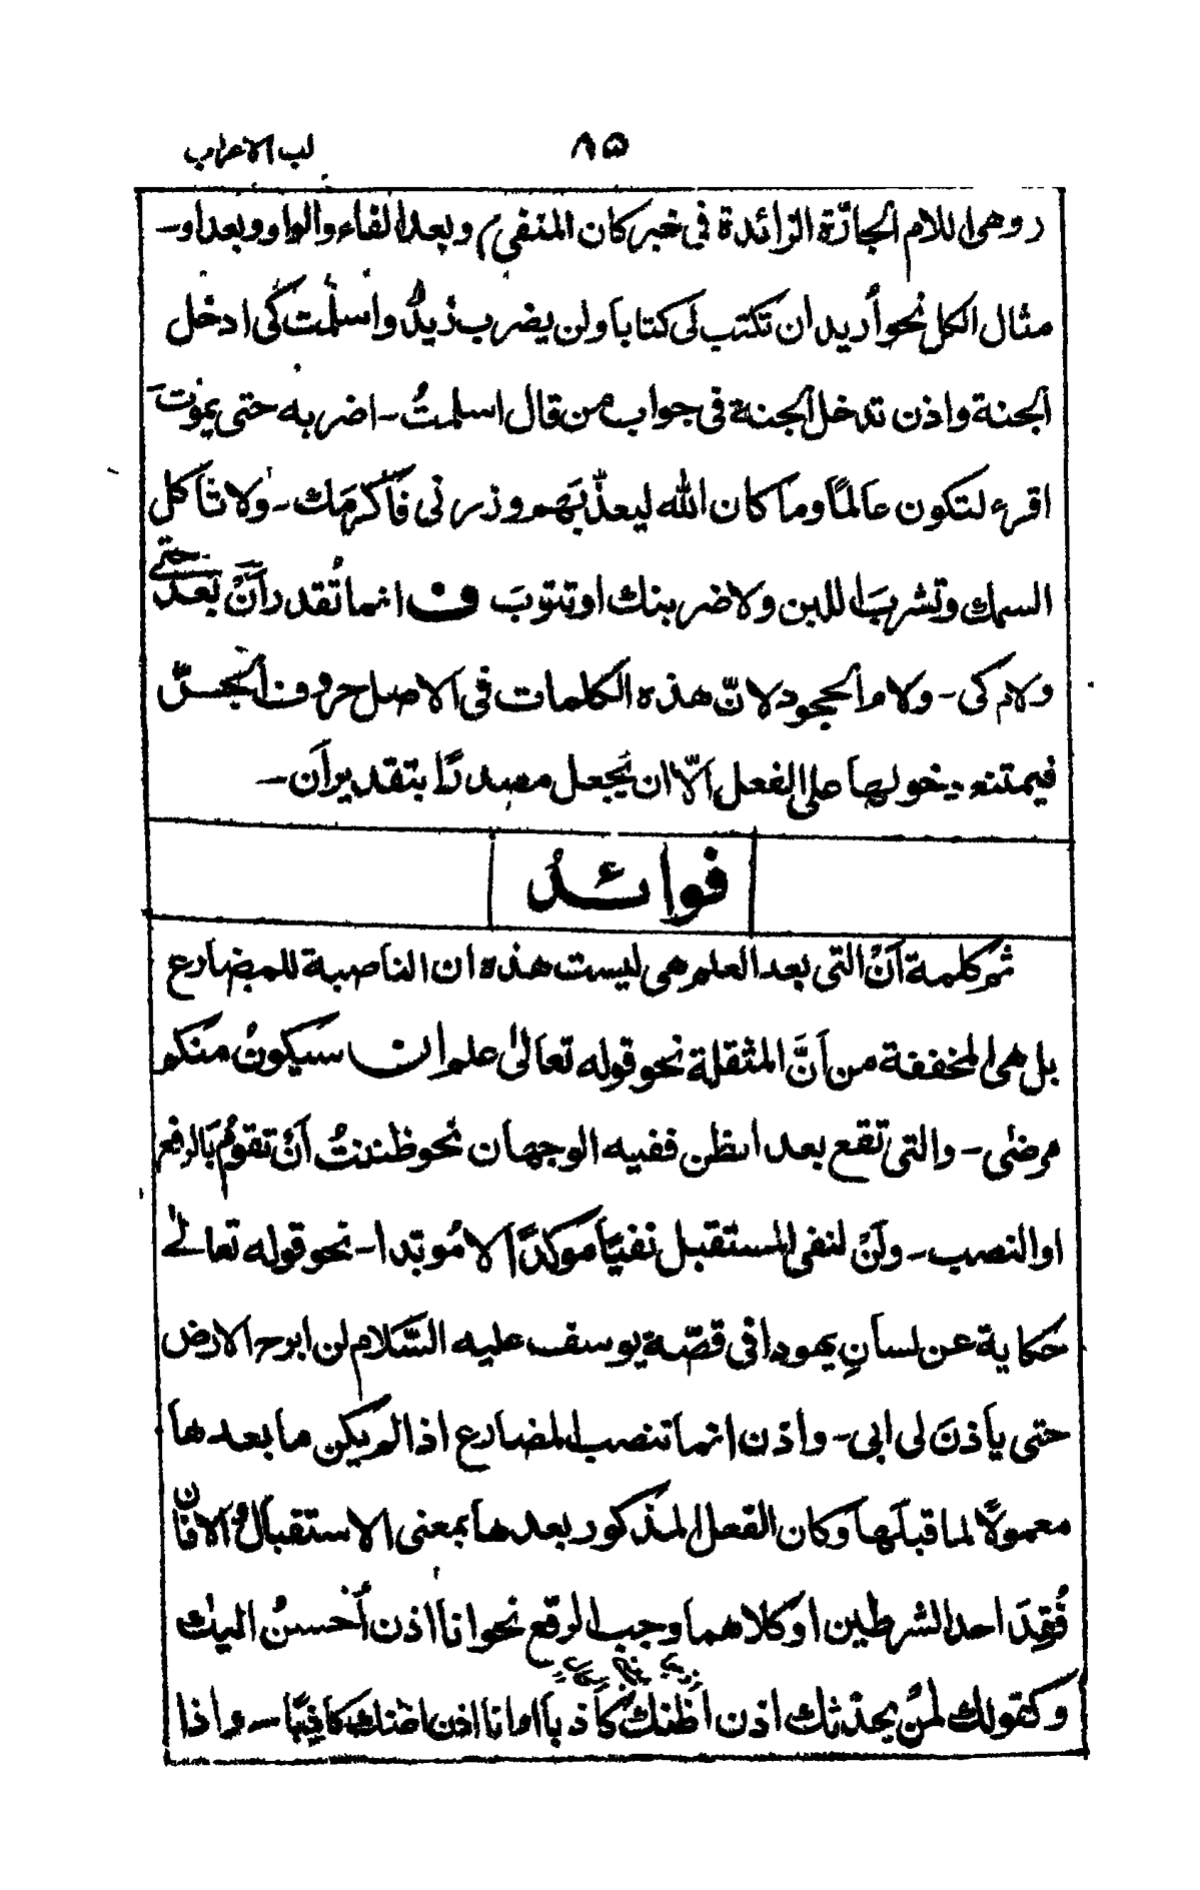 ٨٥ لب الاعراب
(وهى اللام الجارّة الزائدة فى خبر كان المنفى) وبعد الفاء والواو وبعد او-
مثال الكل نحو أريد ان تكتب لى كتابا ولن يضرب زيدٌ واسلمت كى ادخل
الجنة واذن تدخل الجنة فى جواب من قال اسلمتُ - اضربه حتى يموتَ
اقرء لتكون عالماً وما كان الله ليعذّبَهم وزرنى فأكرمَك - ولا تأكل
السمك وتشربَ اللبن ولاضربنك او تتوبَ ف انما تُقدر أَنْ بعد حتّى
ولام كى - ولام الجحود لانّ هذه الكلمات فى الاصل حروف الجرّ
فيمتنع دخولها على الفعل الّا ان يُجعل مصدرًا بتقدير أن -
فوائدُ
ثم كلمة أَنْ التى بعد العلم هى ليست هذه ان الناصبة للمضارع
بل هى المخففة من أَنَّ المثقلة نحو قوله تعالىٰ علم ان سيكونُ منكم
مرضٰى - والتى تقع بعد الظن ففيه الوجهان نحو ظننتُ أَنْ تقومُ بالرفع
او النصب - ولَنْ لنفى المستقبل نفيًا موكدًا لا مُوبّدا - نحو قوله تعالىٰ
حكاية عن لسانِ يهودا فى قصّة يوسف عليه السّلام لن ابرح الارض
حتى يأذنَ لى ابى - واذن انما تنصب المضارع اذا لم يكن ما بعدها
معمولًا لما قبلها وكان الفعل المذكور بعدها بمعنى الاستقبال والا فان
فُقِدَ احد الشرطين او كلاهما وجب الرفع نحو انا اذن أُحسنُ اليك
وكقولك لمن يحدّثك اذن اظنكَ كاذبا او انا اذن اظنك كاذبًا - واذا